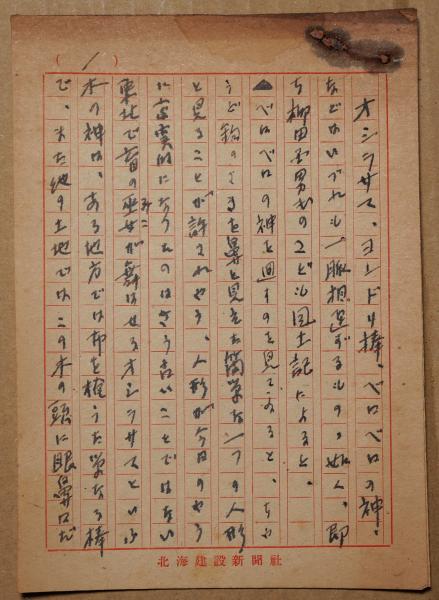 ( 1 )
オシラサマ、ヨンドリ棒、ベロベロの神、
などはいづれも一脈相通ずるものゝ如く、即
ち柳田国男氏のこども風土記によると、
▲ベロベロの神を廻すのを見てゐると、ちや
うど鉤のさきを鼻と見立た簡単な一つの人形
と見ることが許されやう、人形が今日のやう
に写実的になつたのはさう古いことではない
東北で盲の巫女みこが舞はせるオシラサマといふ
木の神は、ある地方では布を捲うた単なる棒
で、また他の土地ではこの木の頭に眼鼻口だ
北海建設新聞社